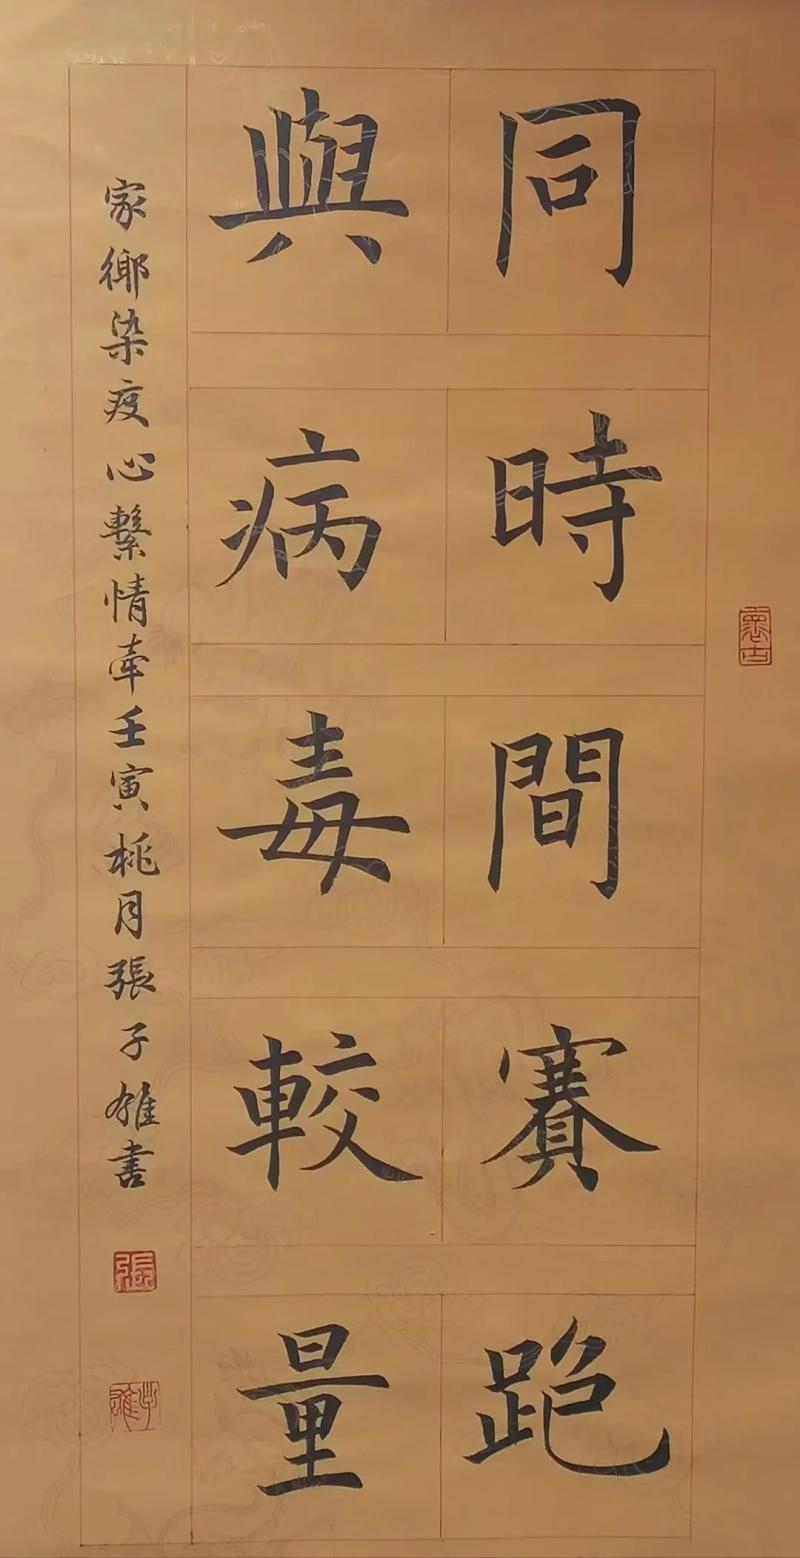 同時間賽跑
與病毒較量
家鄉染疫心繫情牽壬寅桃月張子雄書
懷古
張
子雄